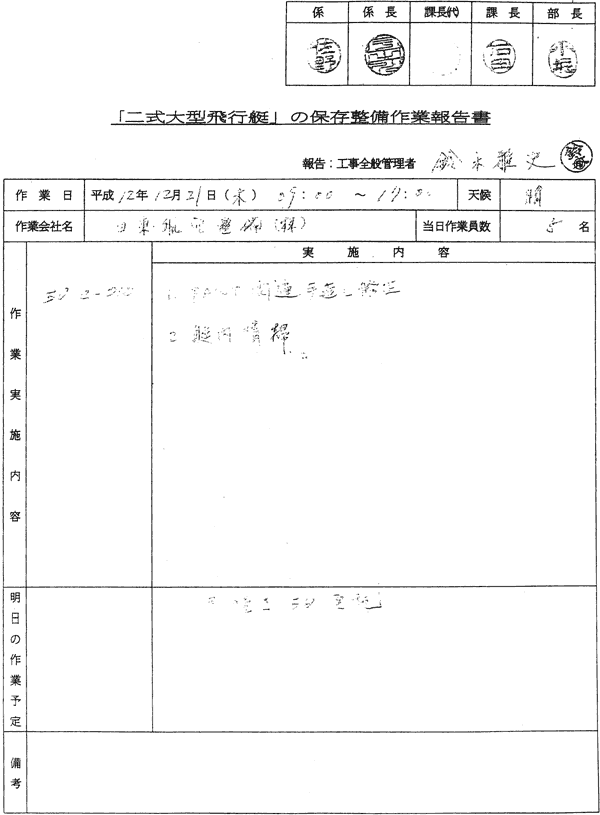 係 係長 課長代 課長 部長
佐野
「二式大型飛行艇」の保存整備作業報告書
報告:工事全般管理者 鈴木雅
作業日 平成12年12月21日(木) 09:00 ~ 17:0 天候 晴
作業会社名 日東航空整備(株) 当日作業員数 5名
作業実施内容
実施内容
1. 関連手直し修正
2 艇内清掃。
明日の作業予定
備考